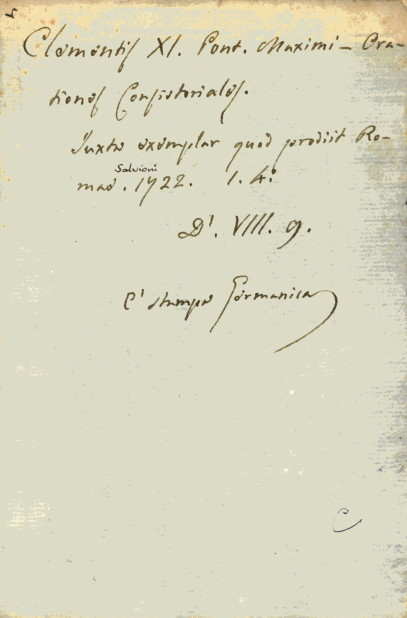 Clementis XI. Pont. Maximi – Ora-
tiones Consistoriales.
Juxta exemplar quod prodiit Ro-
Salvioni
mae. 1722. 1. 4º
D'. VIII. 9.
E' stampa Germanica
C